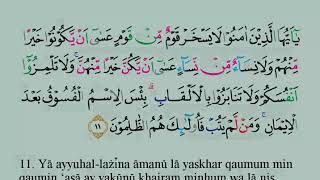 يٰٓاَيُّهَا الَّذِيْنَ اٰمَنُوْا لَا يَسْخَرْ قَوْمٌ مِّنْ قَوْمٍ عَسٰٓى اَنْ يَّكُوْنُوْا خَيْرًا
مِّنْهُمْ وَلَا نِسَاۤءٌ مِّنْ نِّسَاۤءٍ عَسٰٓى اَنْ يَّكُنَّ خَيْرًا مِّنْهُنَّۚ وَلَا تَلْمِزُوْٓا
اَنْفُسَكُمْ وَلَا تَنَابَزُوْا بِالْاَلْقَابِۗ بِئْسَ الِاسْمُ الْفُسُوْقُ بَعْدَ
الْاِيْمَانِۚ وَمَنْ لَّمْ يَتُبْ فَاُولٰۤىِٕكَ هُمُ الظّٰلِمُوْنَ ١١
11. Yā ayyuhal-lażīna āmanū lā yaskhar qaumum min
qaumin ‘asā ay yakūnū khairam minhum wa lā nis